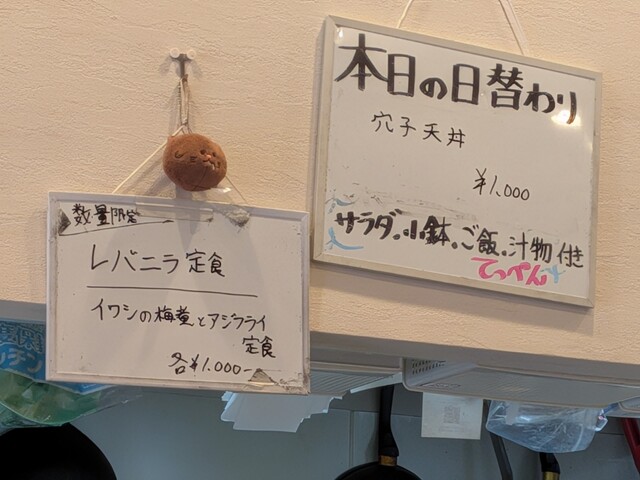 本日の日替わり
穴子天丼
¥1,000
サラダ、小鉢、ご飯、汁物付き
てっぺん
数量限定
レバニラ定食
イワシの梅煮とアジフライ
定食
各¥1.000-